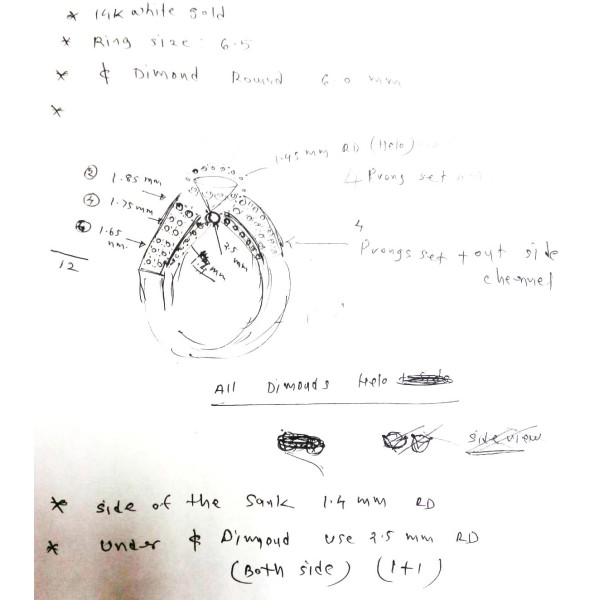 * 14K white Gold
* Ring size: 6.5
* ¢ Dimond Round 6.0 mm
*
1.45 mm RD (Helo)
4 Prong set
② 1.85 mm
④ 1.75 mm
⑥ 1.65 mm
12
2.5 mm
mm
4
Prongs set + out side
chennel
All Dimonds Helo
side view
* side of the Sank 1.4 mm RD
* Under ¢ Dimond use 2.5 mm RD
(Both side) (1+1)